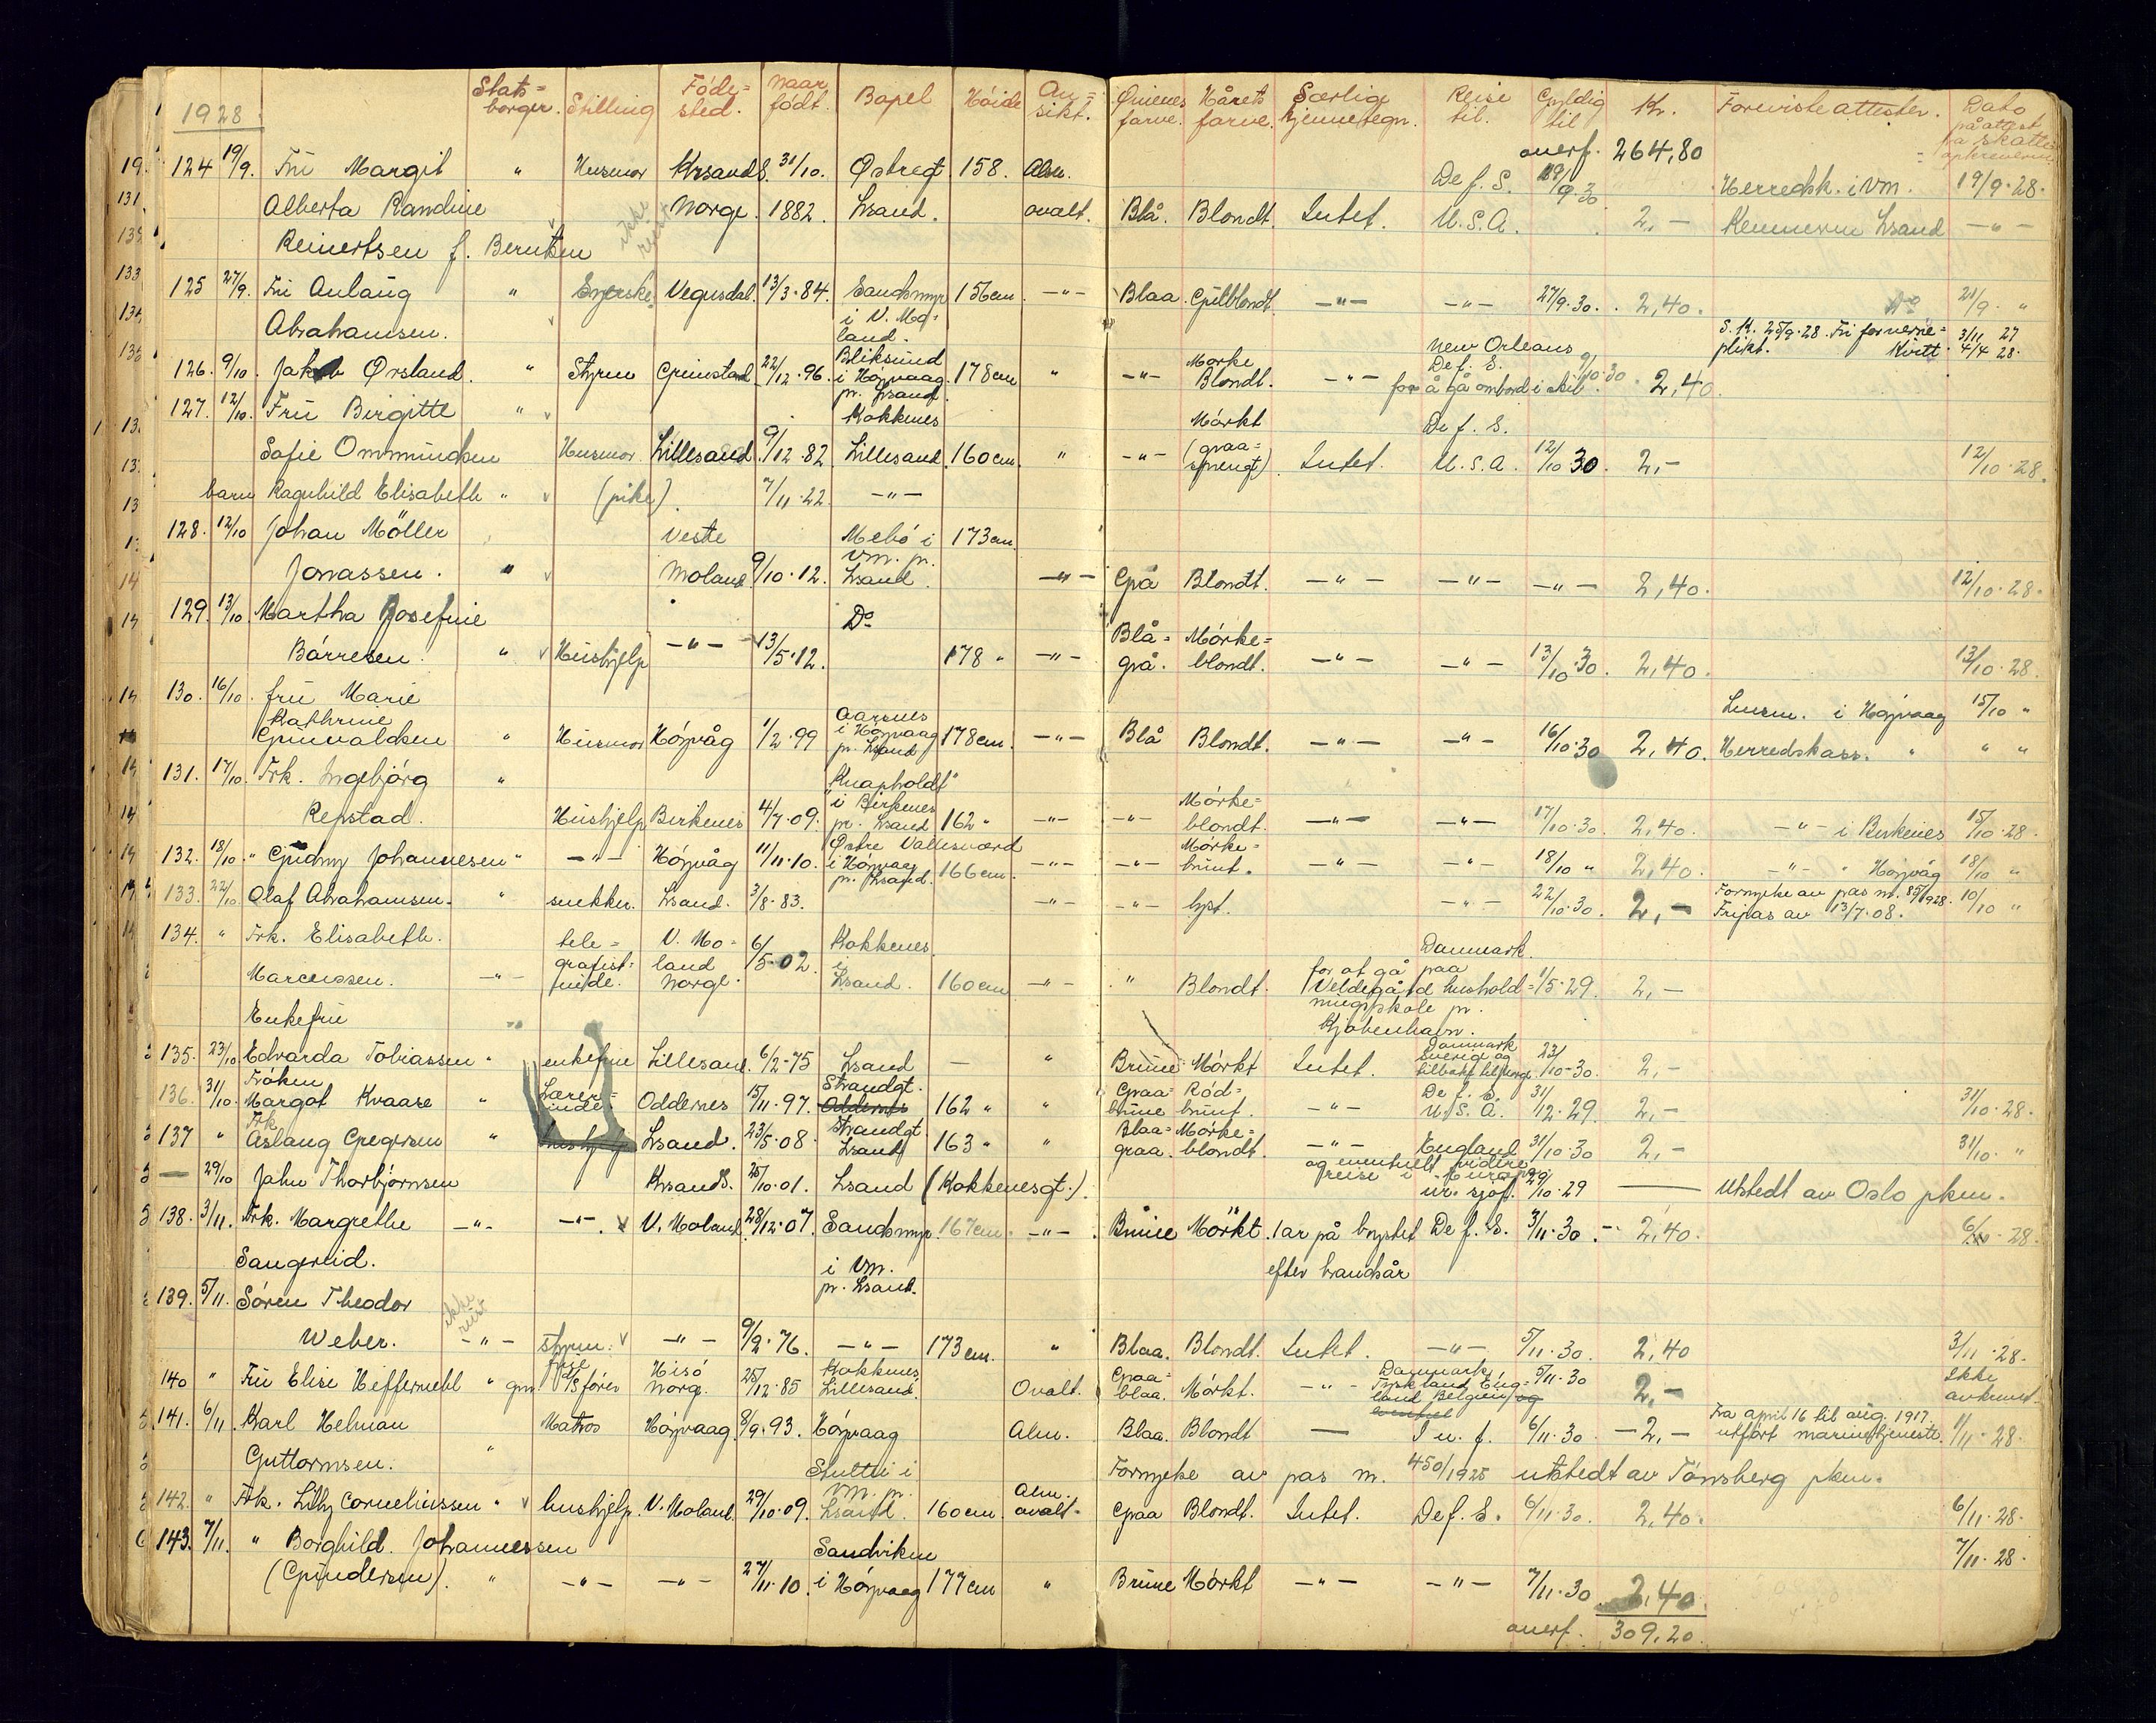 1928
Stats=borger. Stilling Föde=sted. Naar födt. Bopel Höide An=sikt. Öinenes farve. Hårets farve. Særlige kjennetegn. Reise til. Gyldig til Kr. Foreviste attester. Dato på attest fra skatte
overf. 264,80
124 19/9. Fru Margit " Husmor KrsandS. 31/10. Østregt 158. Alm. De f. S. 19/9 30 Herredsk. i Vm. 19/9.28.
Alberta Randine Norge. 1882. Lsand. ovalt. Blå. Blondt. Intet. U.S.A. 2,- Kemneren Lsand -"-
Reinertsen f. Berntsen ikke reist
125 27/9. Fru Aulaug " Syerske Vegusdal. 13/3.84. Sandsmyr 156 cm -"- Blaa. Gulblondt. -"- -"- 27/9.30. 2,40. Do 21/9. "
Abrahamsen. i V. Mo=land.
S. K. 25/9.28. Fri for verne=plikt. Kvitt. 3/11 27 4/4 28.
126. 9/10. Jakob Ørsland. " Styrm Grimstad 22/12.96. Bliksund i Høivaag pr. Lsand 178 cm " -"- Mørke Blondt. -"- New Orleans De f. S. for å gå ombord i skib 9/10.30. 2,40.
127. 12/10. Frü Birgitte " Kokkenes Mörkt De f. S.
Sofie Ommundsen Husmor Lillesand 9/12 82 Lillesand 160 cm " -"- (graa=sprengt) Intet. U.S.A. 12/10 30. 2,- 12/10.28.
barn Ragnhild Elisabeth " (pike). 7/11.22 -"-
128. 12/10 Johan Möller Veste Mebö i 173 cm.
Jonassen. " Moland 9/10.12. Vm. pr. Lsand. -"- Grå Blondt. -"- -"- -"- 2,40. 12/10.28.
129. 13/10 Martha Josefine Do Blå= Mörke=
Börresen. " Hushjelp -"- 13/5.12. 178 " -"- grå. blondt. -"- -"- 13/10 30. 2,40. 13/10.28.
130. 16/10. frü Marie Lensm. i Høivaag 15/10 "
Kathrine Grünvaldsen " Husmor Høivåg 1/2.99 Aarsnes i Høivaag pr. Lsand 178 cm. -"- Blå Blondt. -"- -"- 16/10.30 2,40. Herredskass. " " "
131. 17/10. Frk. Ingebjörg " "Knapholdt" Mörke=
Repstad. Hushjelp Birkenes 4/7.09. i Birkenes pr. Lsand 162 " -"- -"- blondt. -"- -"- 17/10.30. 2,40. -"- i Birkenes 15/10.28.
132. 18/10. " Gudny Johannesen " -"- Høivåg 11/11.10. Östre Vallesværd i Høivaag pr. Lsand. 166 cm. -"- -"- Mörke=brunt. -"- -"- 18/10 " 2,40. -"- " Høivåg 18/10 "
133. 22/10 Olaf Abrahamsen. " snekker. Lsand. 3/8.83. -"- -"- lyst. -"- 22/10.30. 2,- Fornyelse av pas nr. 85/1928. Fripas av 13/7.08. 10/10 "
134. " Frk. Elisabeth. tele= V. Mo= 6/5.02. Kokkenes Danmark.
Marcussen. -"- grafist=inde. land Norge. i Lsand. 160 cm -"- " Blondt. for at gå paa Veldegård hushold=ningsskole pr. Kjøbenhavn. 1/5.29. 2,-
Enkefrü
135. 23/10 Edvarda Tobiassen " enkefrue Lillesand 6/2-75 Lsand - " Brune Mörkt Intet. Danmark Sverige og tilbake til Norge 23/10-30. 2,-
136. 31/10. Fröken Margot Kvaase " Lærer=inde Oddernes 15/11.97. Strandgt. Oddernes 162 " " Graa=brune Röd=brünt. -"- De f. S. U.S.A. 31/12.29. 2,- 31/10.28.
137 " Frk Aslaug Gregersen " hushjelp Lsand. 23/5.08. Strandgt. Lsand 163 " " Blaa=graa. Mörke=blondt. -"- England 31/10.30 2,- 31/10. "
og eventuelt videre reise i Europa
- 29/10 John Thorbjørnsen KrsandS. 25/10.01. Lsand (Kokkenesgt.). ur. sjøf. 29/10.29 - Utstedt av Oslo pkm.
138. 3/11. Frk. Margrethe -"- -"- V. Moland 28/12.07. Sandsmyr 167 cm. -"- Brune Mörkt. 1 ar på brystet De f. S. 3/11.30. - 2,40. 6/11.28.
Sangereid. i Vm. pr. Lsand. efter brandsår
139. 5/11. Sören Theodor ikke reist
Weber. -"- styrm. -"- 9/2.76. -"- 173 cm. " Blaa. Blondt. Intet. -"- 5/11.30. 2,40 3/11.28.
140 " Frü Elise Heffermehl " gm D/S fører Hisö Norg. 25/12.85 Kokkenes Lillesand. Ovalt. Graa=blaa. Mörkt. -"- Danmark, Tyskland Eng=land Belgien og 5/11.30 2,- Ikke avkrævet.
141. 6/11. Karl Helman Matros Høivaag 8/9.93. Høivaag Alm. Blaa. Blondt - I u. f. 6/11.30 -2,- Fra april 16 til aug. 1917. utført marinetjeneste. 1/11.28.
Guttormsen. " Fornyelse av pas nr. 450/1925 utstedt av Tønsberg pkm.
142. " Frk. Lilly Corneliussen " hushjelp. V. Moland. 29/10.09. Stulten i Vm. pr. Lsand. 160 cm. Alm. ovalt. Graa Blondt. Intet. De f. S. 6/11.30. 2,40. 6/11.28.
143. 7/11. " Borghild Johannessen Sandviken 7/11.28.
(Gundersen). " -"- -"- 27/11.10. i Høivaag 177 cm " Brune Mörkt -"- -"- 7/11.30 2,40.
overf. 309,20